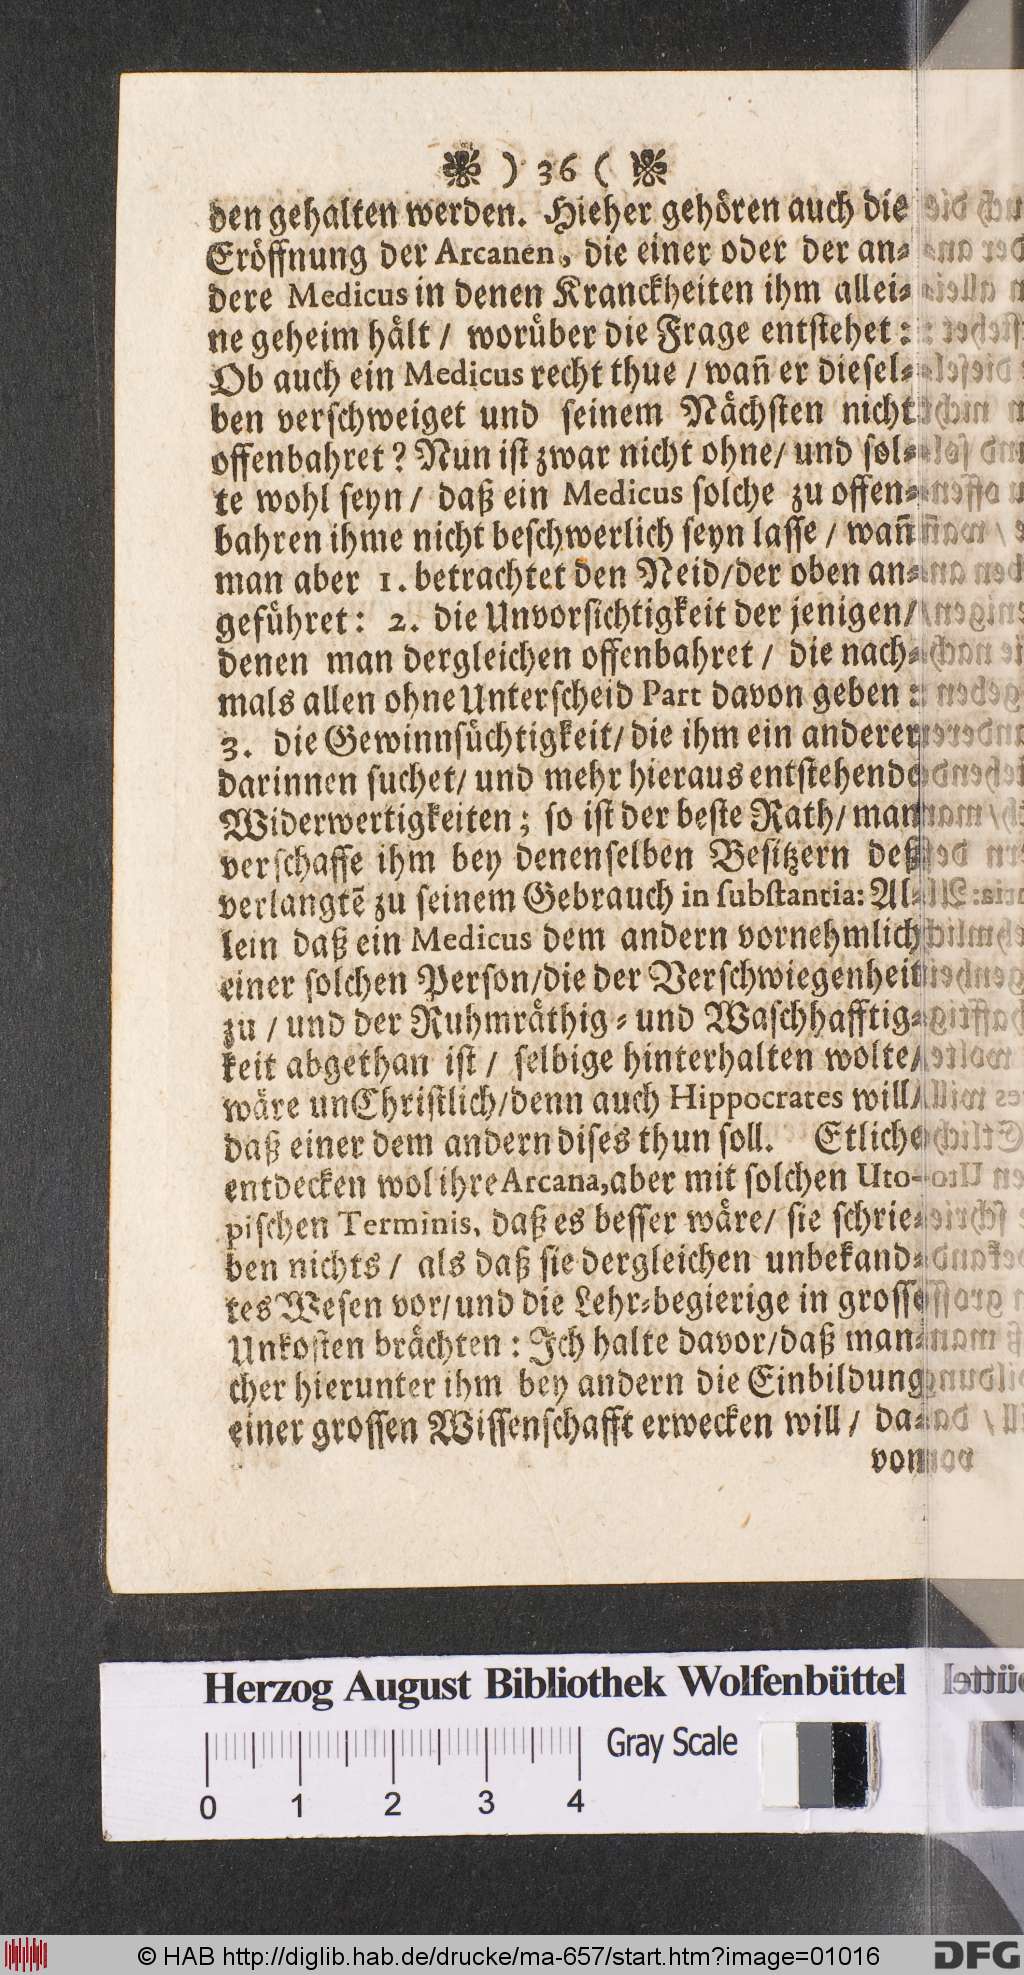 ❧ ) 36 ( ❧
den gehalten werden. Hieher gehören auch die
Eröffnung der Arcanen, die einer oder der an-
dere Medicus in denen Kranckheiten ihm allei-
ne geheim hält / worüber die Frage entstehet:
Ob auch ein Medicus recht thue / wañ er diesel-
ben verschweiget und seinem Nächsten nicht
offenbahret? Nun ist zwar nicht ohne/ und sol-
te wohl seyn / daß ein Medicus solche zu offen-
bahren ihme nicht beschwerlich seyn lasse / wañ
man aber 1. betrachtet den Neid/der oben an-
geführet: 2. die Unvorsichtigkeit der jenigen/
denen man dergleichen offenbahret / die nach-
mals allen ohne Unterscheid Part davon geben:
3. die Gewinnsüchtigkeit/ die ihm ein anderer
darinnen suchet/ und mehr hieraus entstehende
Widerwertigkeiten; so ist der beste Rath/ man
verschaffe ihm bey denenselben Besitzern deß
verlangtē zu seinem Gebrauch in substantia: Al-
lein daß ein Medicus dem andern vornehmlich
einer solchen Person/die der Verschwiegenheit
zu / und der Ruhmräthig- und Waschhafftig-
keit abgethan ist / selbige hinterhalten wolte/
wäre unChristlich/denn auch Hippocrates will/
daß einer dem andern dises thun soll. Etliche
entdecken wol ihre Arcana, aber mit solchen Uto-
pischen Terminis, daß es besser wäre/ sie schrie-
ben nichts / als daß sie dergleichen unbekand-
tes Wesen vor/ und die Lehr-begierige in grosse
Unkosten brächten: Ich halte davor/daß man-
cher hierunter ihm bey andern die Einbildung
einer grossen Wissenschafft erwecken will / da-
von
Herzog August Bibliothek Wolfenbüttel
Gray Scale
0 1 2 3 4
© HAB http://diglib.hab.de/drucke/ma-657/start.htm?image=01016
DFG